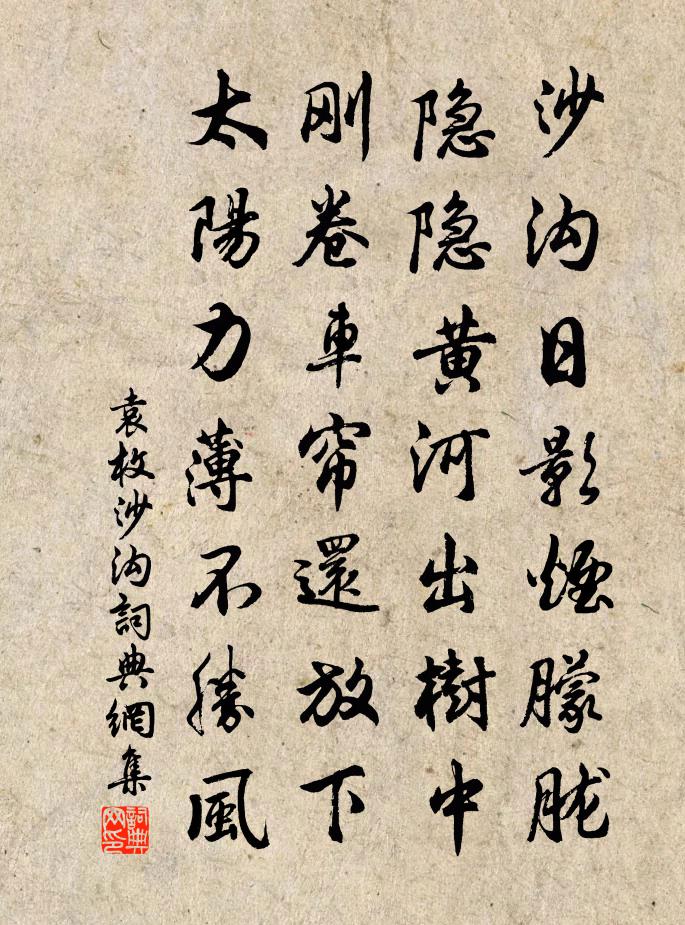 沙沟日影煙朦胧
隐隐黄河出樹中
刚卷車帘還放下
太陽力薄不勝風
袁枚沙沟詞典網集
詞典网印